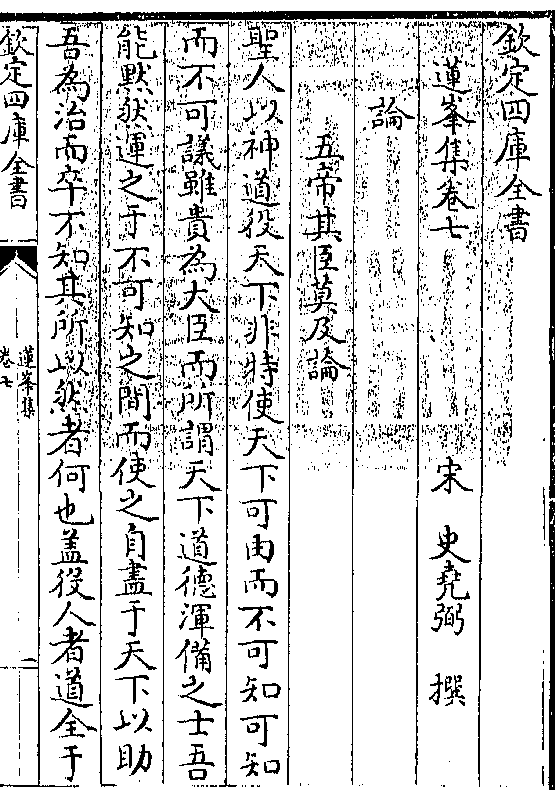 欽定四庫全書
蓮峯集卷七
宋 史堯弼 撰
論
五帝其臣莫及論
聖人以神道役天下非特使天下可由而不可知可知
而不可議雖貴為大臣而所謂天下道德渾備之士吾
能默然運之于不可知之間而使之自盡于天下以助
吾為治而卒不知其所以然者何也盖役人者道全于
欽定四庫全書
蓮峯集
卷七
一